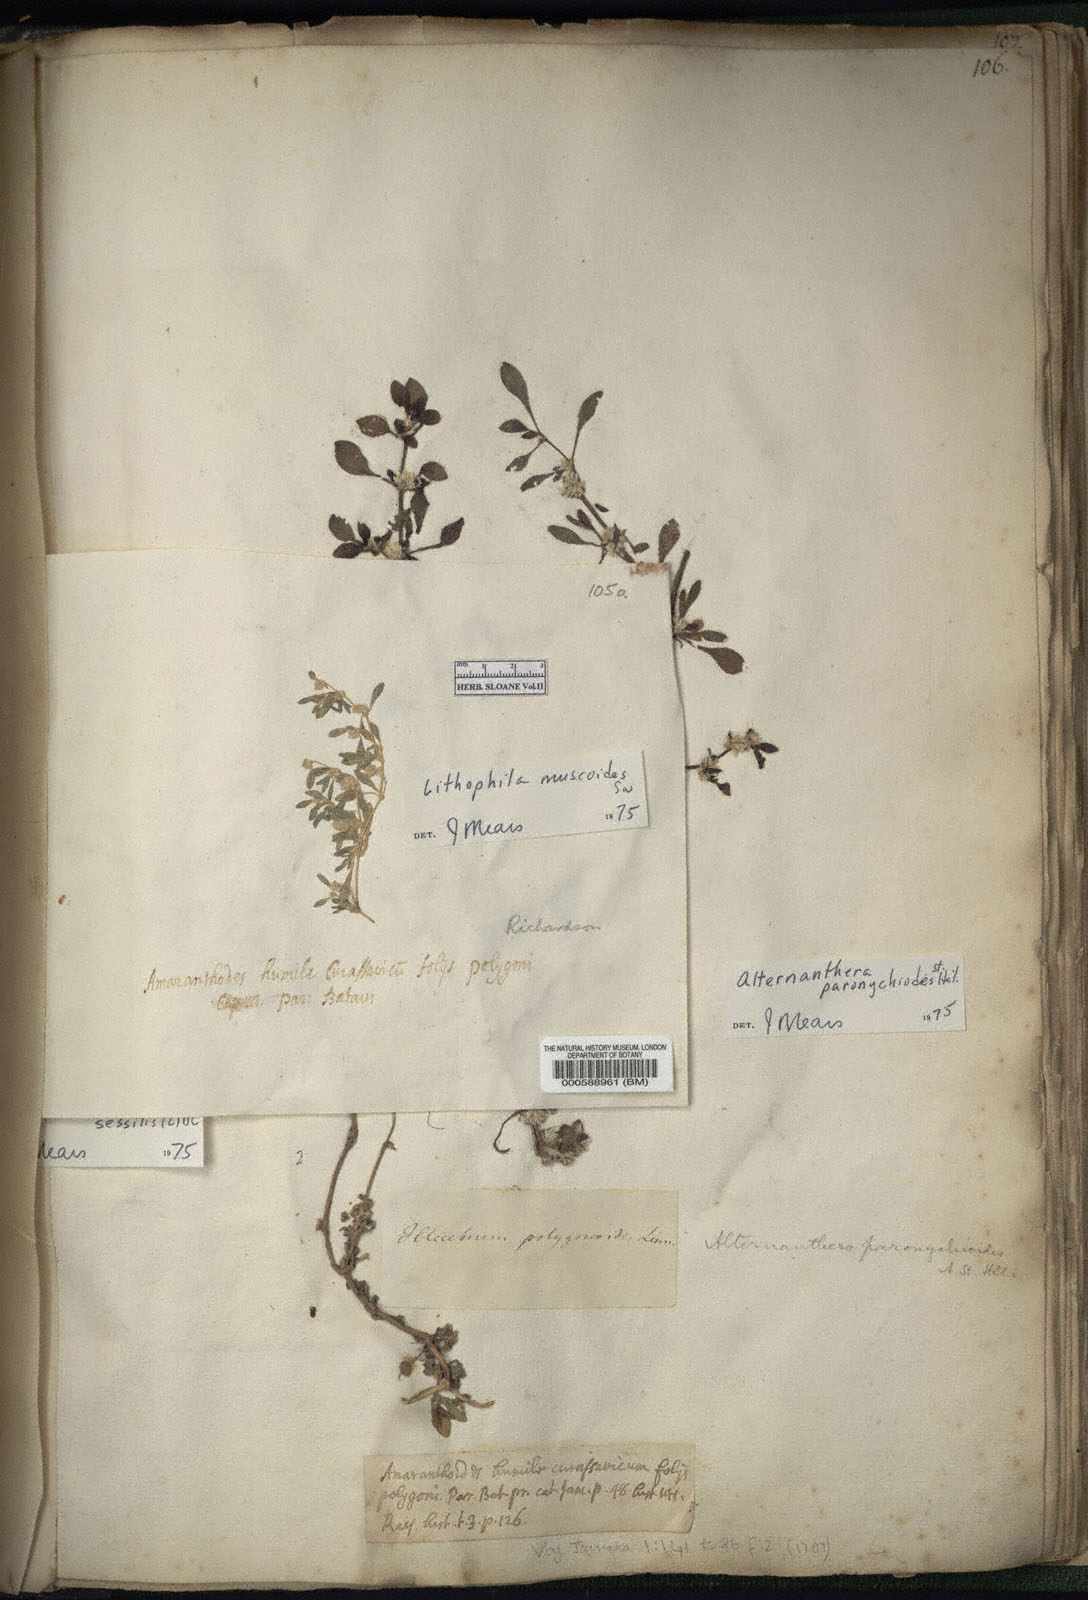 107
106.
105a
mm 1 2 3
HERB. SLOANE Vol.II
Lithophila muscoides
Sw
DET. J Mears 1975
Richardson
Amaranthodes humile Curassavicū folys polygoni
par: Batav:
Alternanthera
paronychiodes St. Hil.
DET. J Mears 1975
THE NATURAL HISTORY MUSEUM, LONDON
DEPARTMENT OF BOTANY
000588961 (BM)
sessilis (L) DC
Mears 1975
2
Illecebrum polygonoides Linn.
Alternanthera paronychioides
A St Hil.
Amaranthoides humile curassavicum folijs
polygoni. Par. Bat. pr. cat. Jam. p. 48 hist. 141.
Raij hist. t. 3. p. 126.
Voy. Jamaica 1:141 t. 86 f 2 (1707)